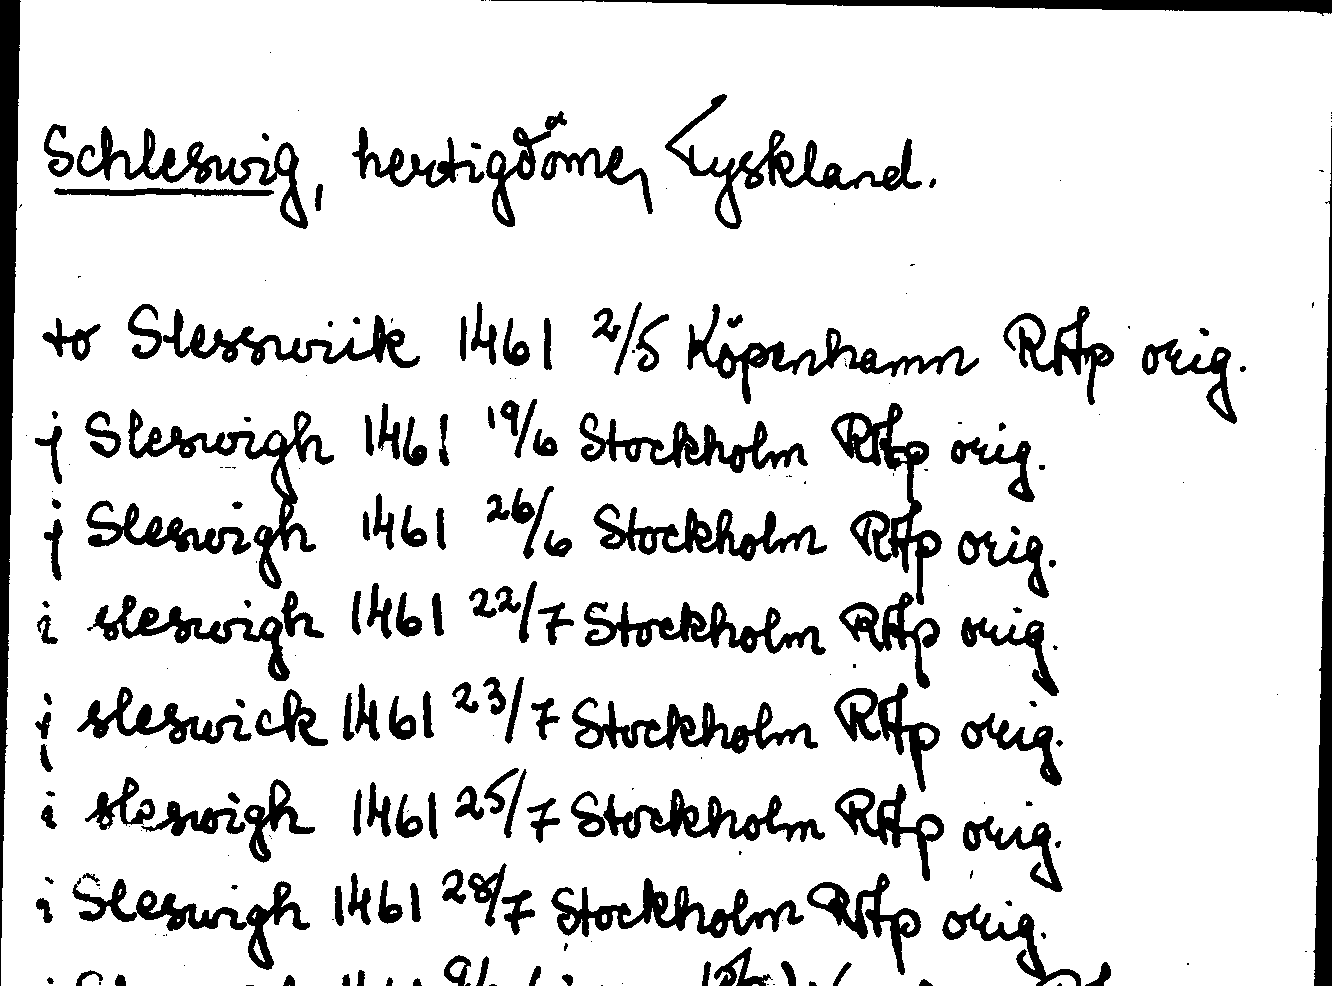 Schleswig, hertigdöme, Tyskland.
to Slesswiik 1461 2/5 Köpenhamn RAp orig.
j Sleswigh 1461 19/6 Stockholm RAp orig.
j Sleswigh 1461 26/6 Stockholm RAp orig.
i sleswigh 1461 22/7 Stockholm RAp orig.
j sleswick 1461 23/7 Stockholm RAp orig.
i sleswigh 1461 25/7 Stockholm RAp orig.
i Sleswigh 1461 28/7 Stockholm RAp orig.